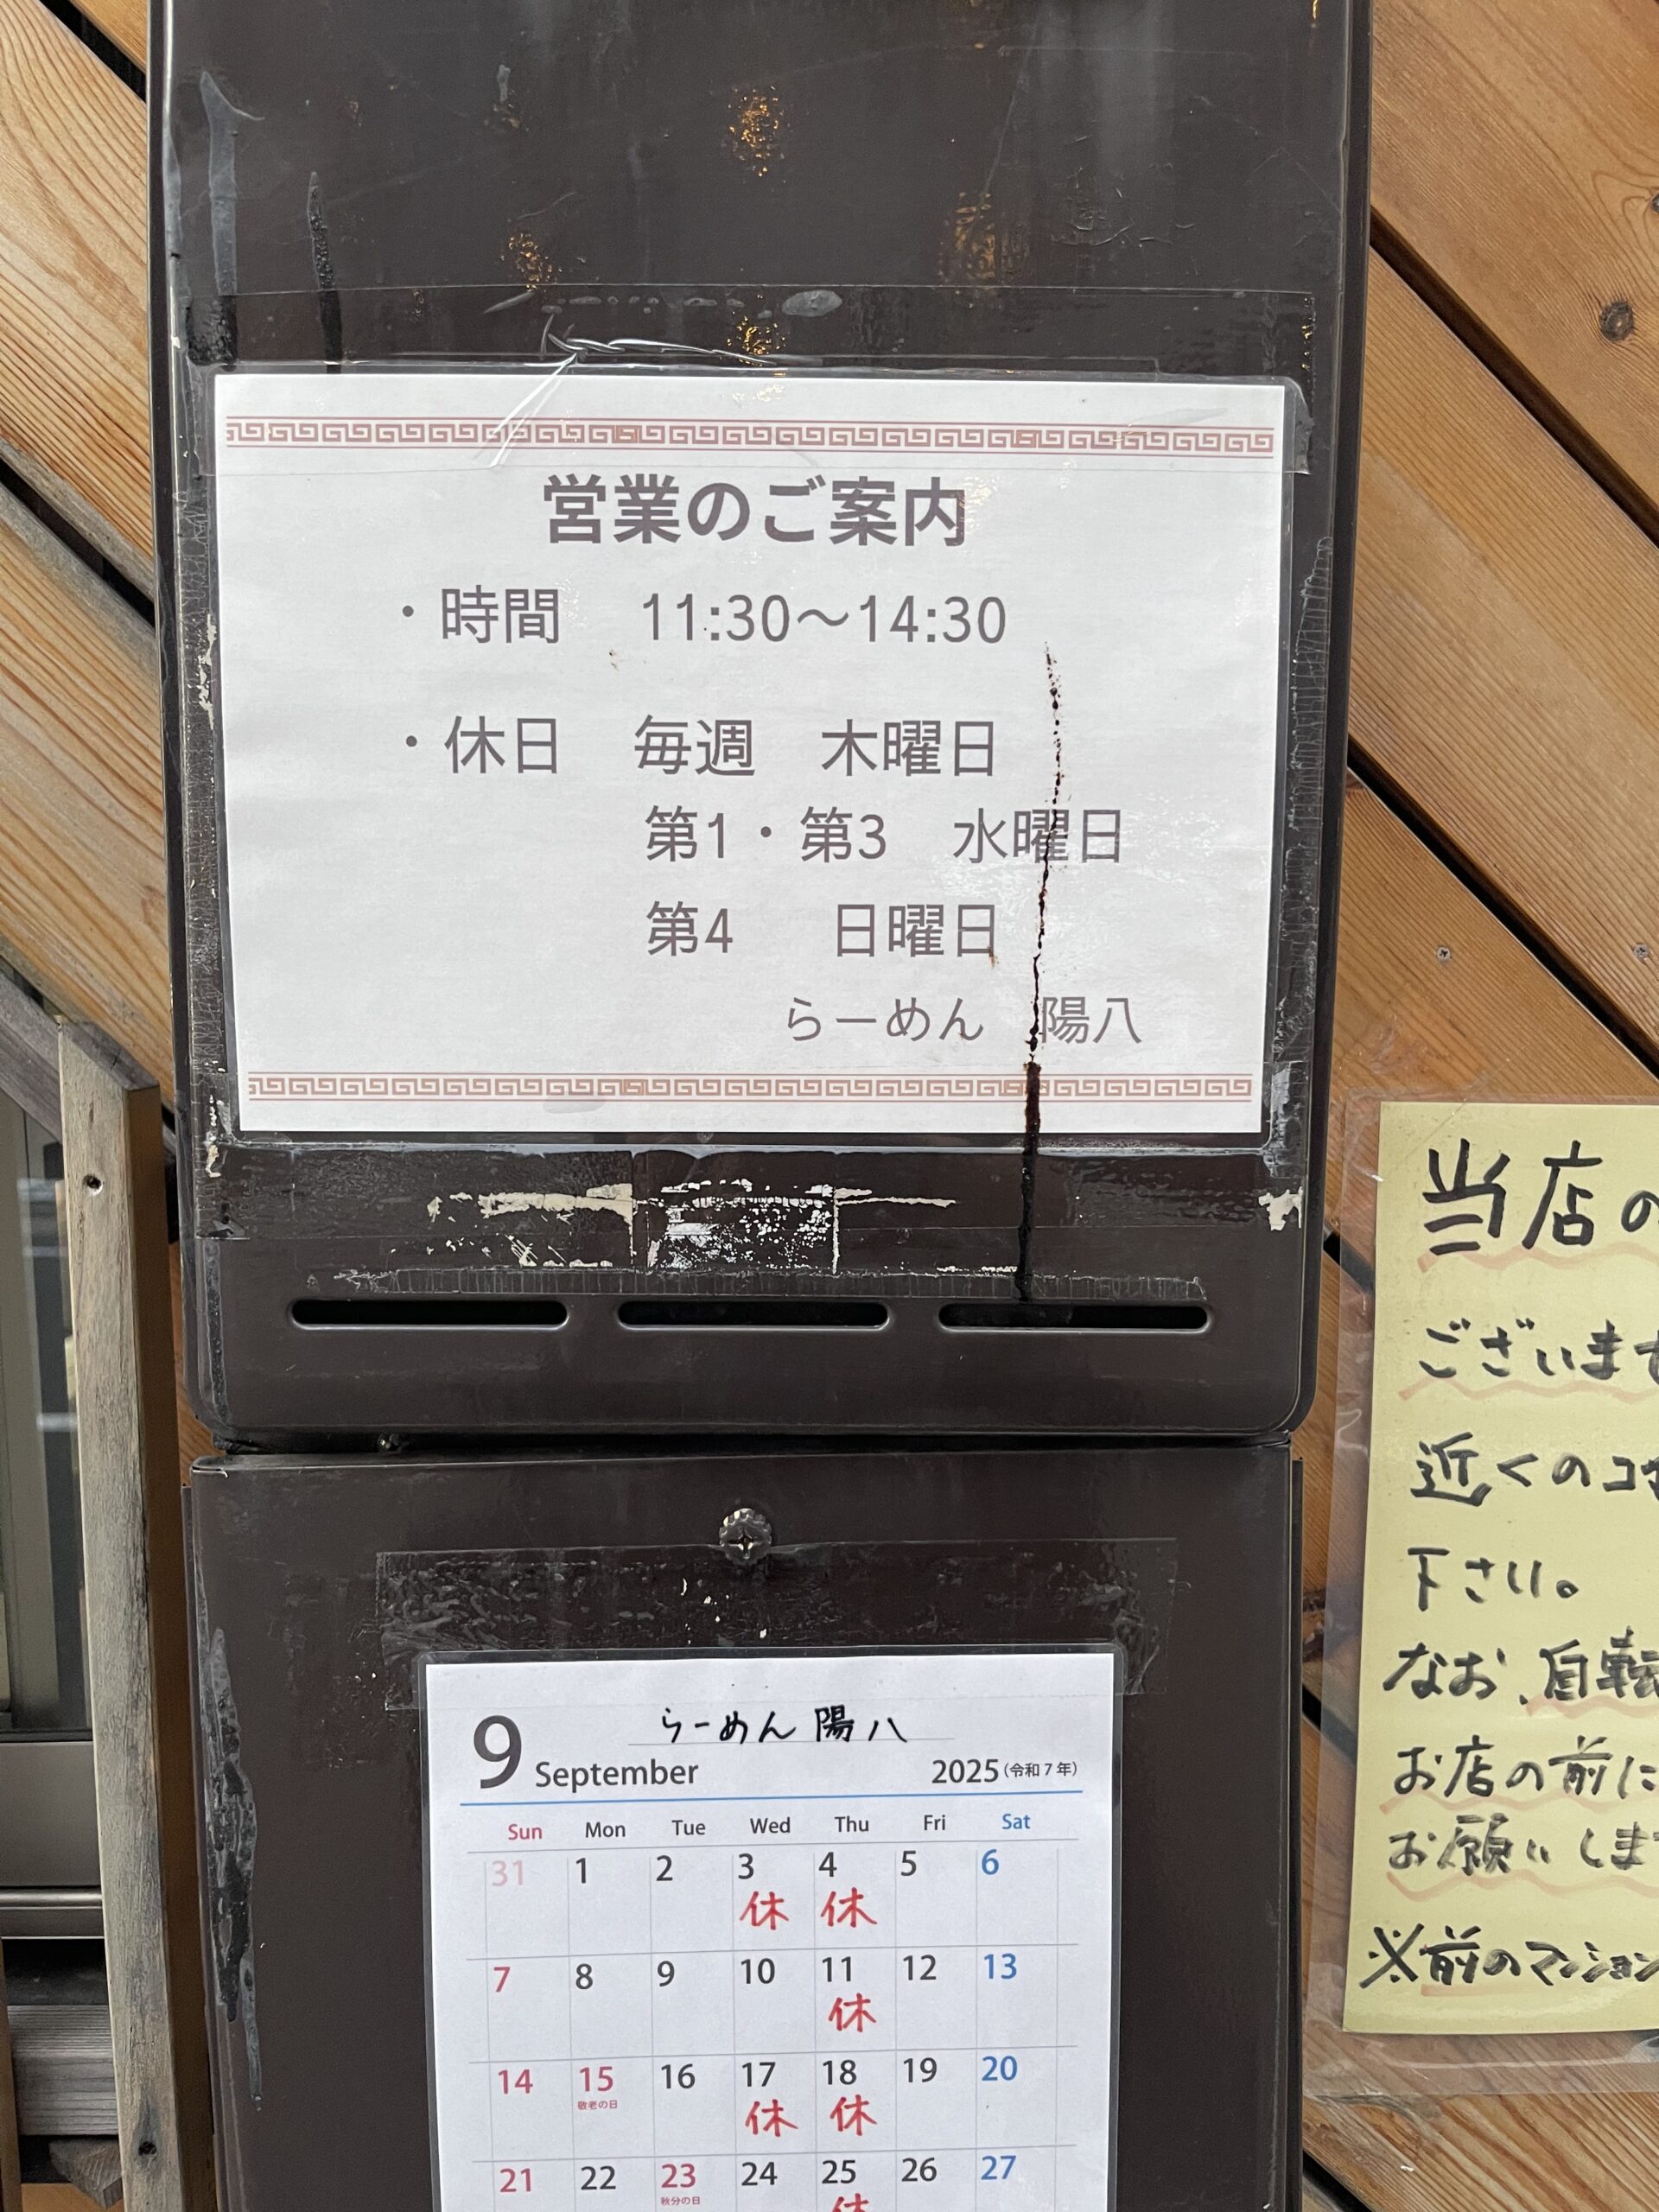 営業のご案内
・時間 11:30～14:30
・休日 毎週 木曜日
第1・第3 水曜日
第4 日曜日
らーめん 陽八
らーめん 陽八
9 September 2025(令和7年)
Sun Mon Tue Wed Thu Fri Sat
31 1 2 3 4 5 6
休 休
7 8 9 10 11 12 13
休
14 15 16 17 18 19 20
敬老の日 休 休
21 22 23 24 25 26 27
秋分の日 休
当店の
ございませ
近くのコ
下さい。
なお、自転
お店の前に
お願いしま
※前のマンション